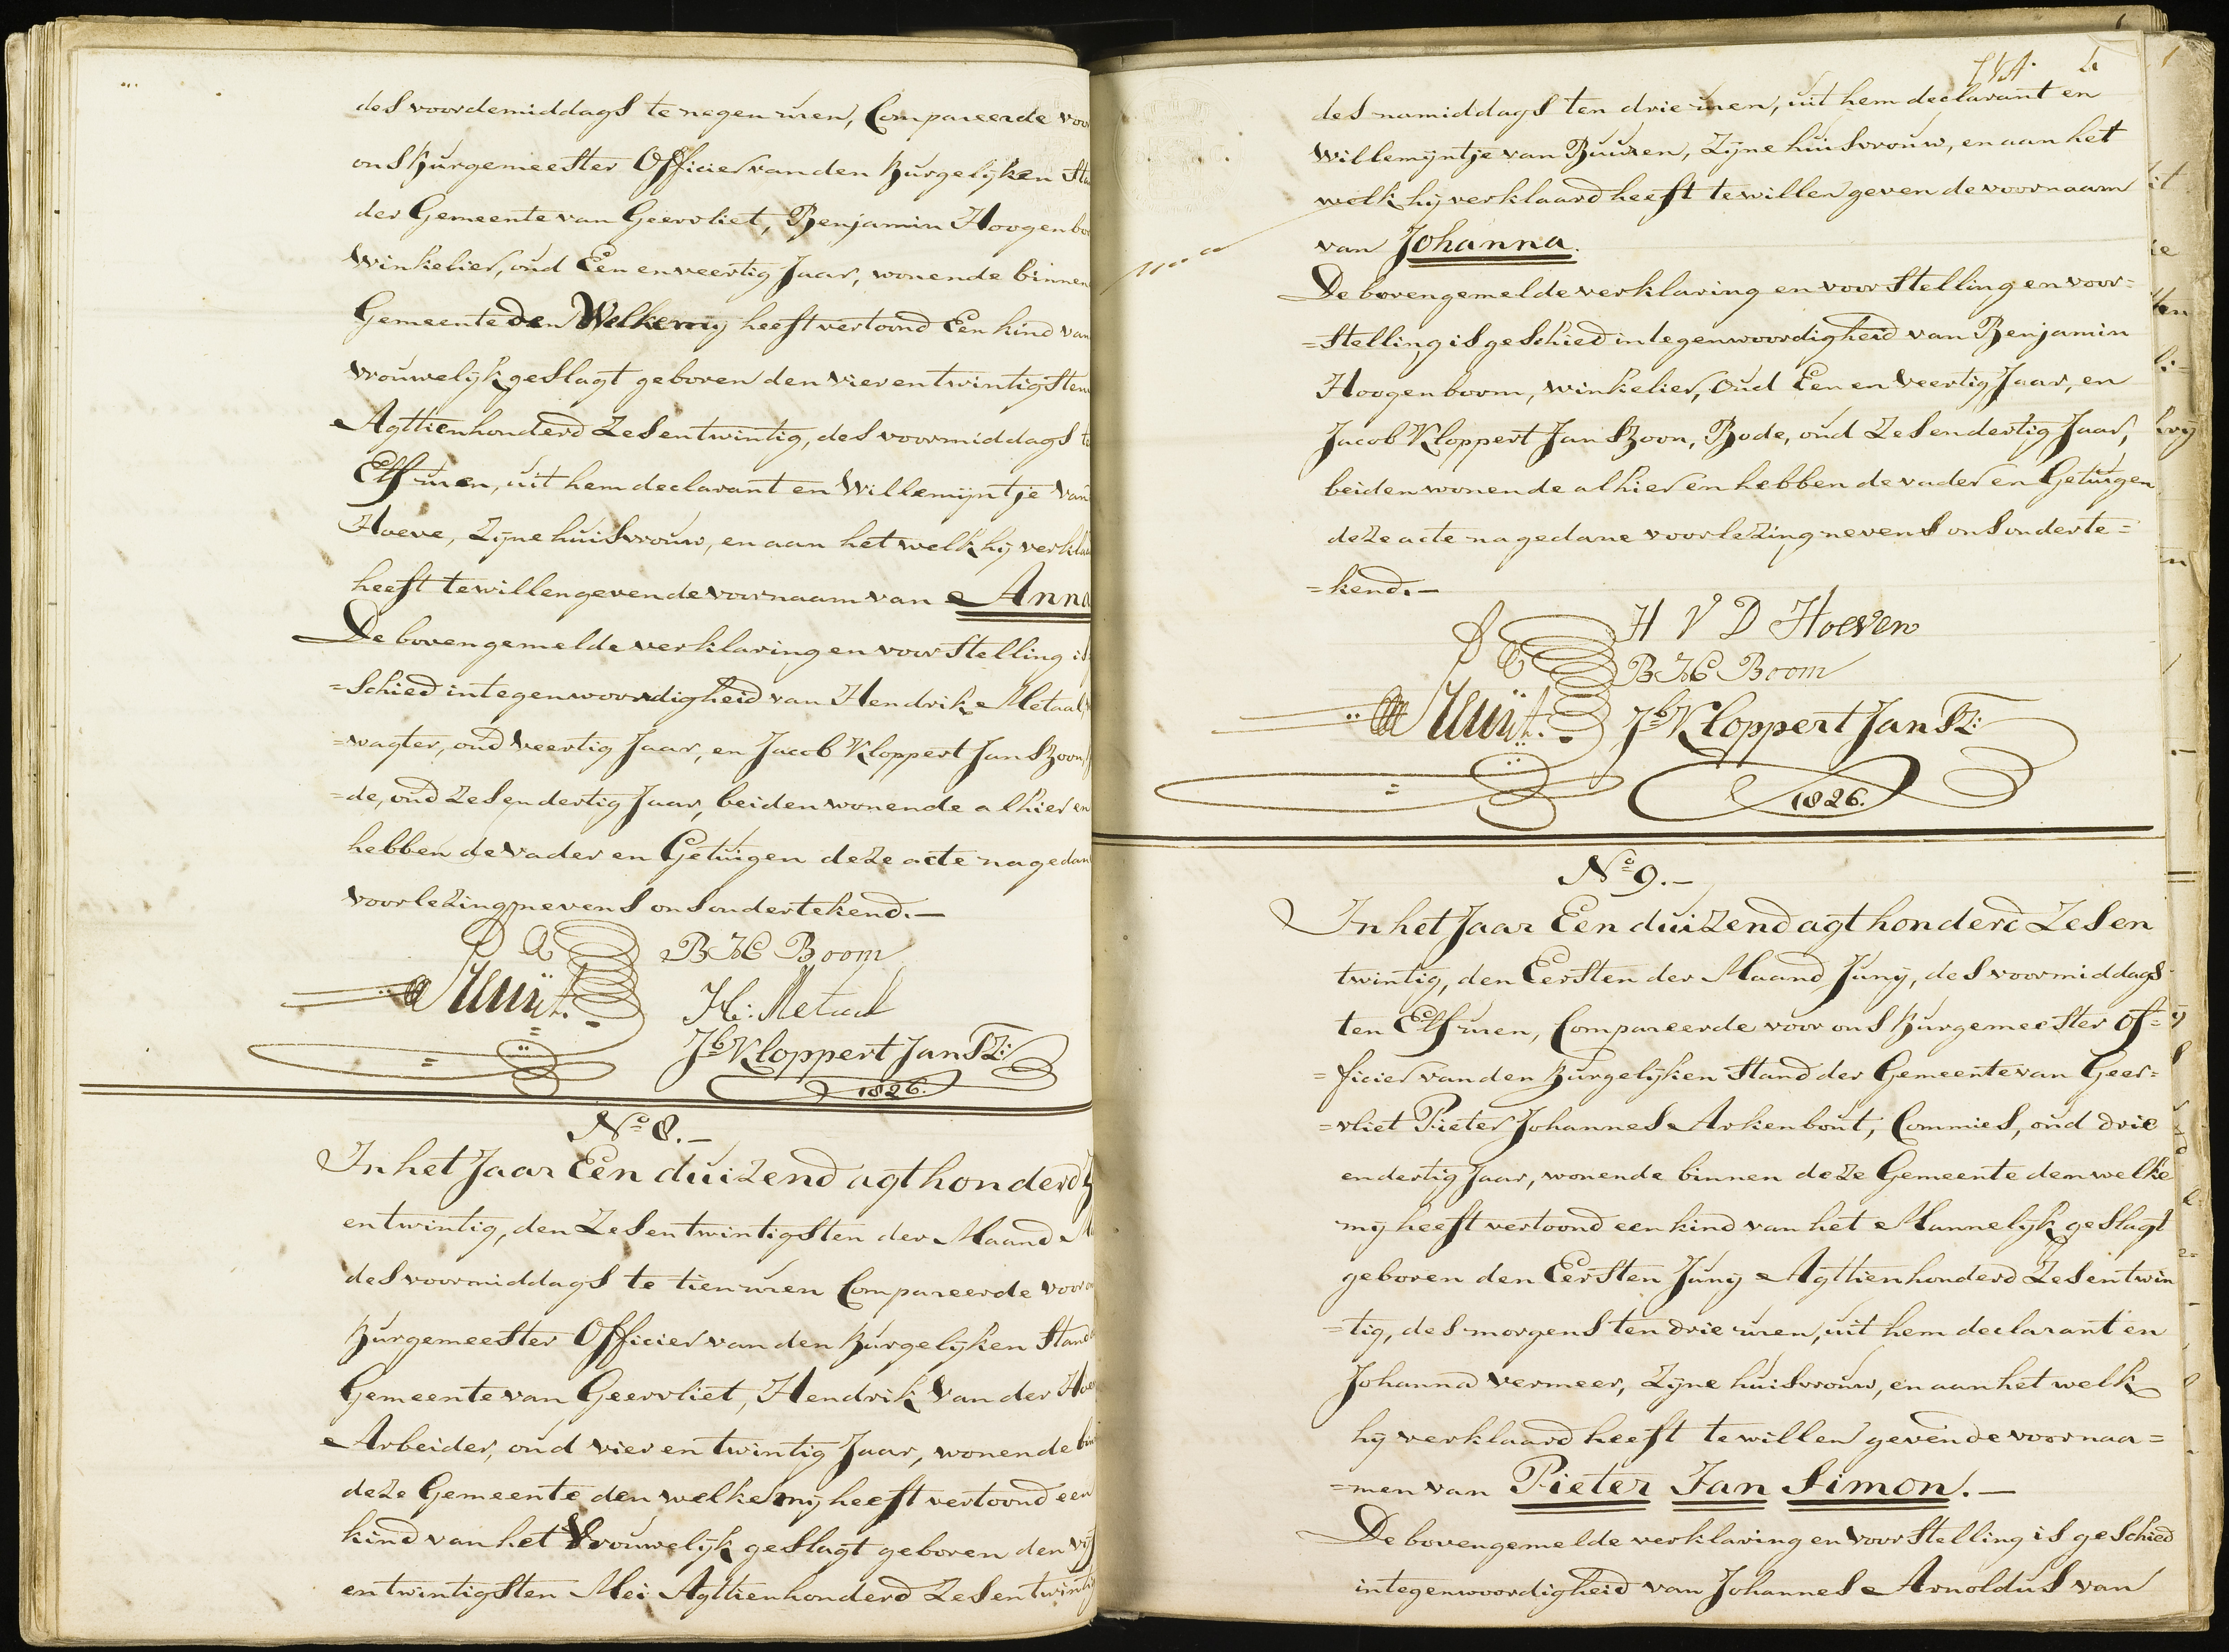 des voordemiddags te negen uren, Compareerde voor
ons Burgemeester Officier van den Burgelijken Sta
der Gemeente van Geervliet, Benjamin Hoogenboo
Winkelier, oud Een en veertig Jaar, wonende binnen
Gemeente den Welke mij heeft vertoond Een kind van
vrouwelijk geslagt geboren den vier en twintigsten
Agttienhonderd Zes en twintig, des voormiddags te
Elf uren, uit hem declarant en Willemijntje van
Hoeve, Zijne huisvrouw, en aan het welk hij verkla
heeft te willen geven de voornaam van Anna
De bovengemelde verklaring en voorstelling is
=schied in tegenwoordigheid van Hendrik Metaal,
=wagter, oud veertig Jaar, en Jacob Kloppert Jan Szoon,
=de, oud Zes en dertig Jaar, beiden wonende alhier en
hebben de vader en Getuigen deze acte na gedan
voorlezing nevens ons ondertekend.—
B H Boom
H: Metaal
Jb Kloppert Jan SZ:
1826.
No 8.—
In het Jaar Een duizend agt honderd Z
en twintig, den Zes en twintigsten der Maand M
des voormiddags te tien uren Compareerde voor o
Burgemeester Officier van den Burgelijken Stand
Gemeente van Geervliet, Hendrik van der Hoev
Arbeider, oud vier en twintig Jaar, wonende bin
deze Gemeente den welke mij heeft vertoond een
kind van het Vrouwelijk geslagt geboren den vijf
en twintigsten Mei Agttienhonderd Zes en twintig
des namiddags ten drie uren, uit hem declarant en
Willemijntje van Buuren, Zijne huisvrouw, en aan het
welk hij verklaard heeft te willen geven de voornaam
van Johanna.
De bovengemelde verklaring en voorstelling en voor=
=stelling is geschied in tegenwoordigheid van Benjamin
Hoogenboom, winkelier, Oud Een en Veertig Jaar, en
Jacob Kloppert Jan Szoon, Bode, oud Zes en dertig Jaar,
beiden wonende alhier en hebben de vader en Getuigen
deze acte na gedane voorlezing nevens ons onderte=
=kend.—
H V D Hoeven
B H Boom
Jb Kloppert Jan SZ:
1826.
No 9.—
In het Jaar Een duizend agt honderd Zes en
twintig, den Eersten der Maand Junij, des voormiddags
ten Elf uren, Compareerde voor ons Burgemeester Of=
=ficier van den Burgelijken Stand der Gemeente van Geer=
=vliet Pieter Johannes Arkenbout, Commies, oud drie
en dertig Jaar, wonende binnen deze Gemeente den welke
mij heeft vertoond een kind van het Mannelijk geslagt
geboren den Eersten Junij Agttienhonderd Zes en twin
=tig, des morgens ten drie uren, uit hem declarant en
Johanna Vermeer, Zijne huisvrouw, en aan het welk
hij verklaard heeft te willen geven de voornaa=
=men van Pieter Jan Simon.—
De bovengemelde verklaring en voorstelling is geschied
in tegenwoordigheid van Johannes Arnoldus van